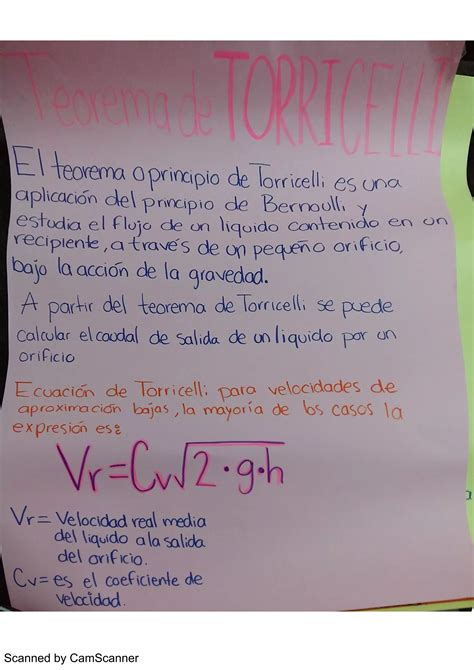 Teorema de TORRICELLI
El teorema o principio de Torricelli es una
aplicación del principio de Bernoulli y
estudia el flujo de un liquido contenido en un
recipiente, a través de un pequeño orificio,
bajo la acción de la gravedad.
A partir del teorema de Torricelli se puede
calcular el caudal de salida de un liquido por un
orificio
Ecuación de Torricelli para velocidades de
aproximación bajas, la mayoría de los casos la
expresión es:
Vr=Cv√2·g·h
Vr= Velocidad real media
del liquido a la salida
del orificio.
Cv= es el coeficiente de
velocidad.
Scanned by CamScanner